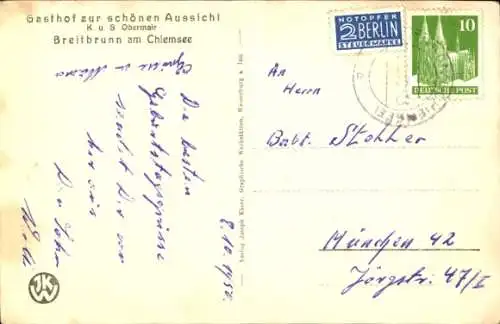 Gasthof zur schönen Aussicht
K. u S Obermair
Breitbrunn am Chiemsee
Die besten
Geburtstagsgrüsse
sendet Dir von
hier aus
8.10.1950.
Verlag Joseph Käser, Graphische Werkstätten, Wasserburg a. Inn
NOTOPFER
2 BERLIN
STEUERMARKE
10
DEUTSCHE POST
An
Herrn
München 42
Jörgstr. 47/I